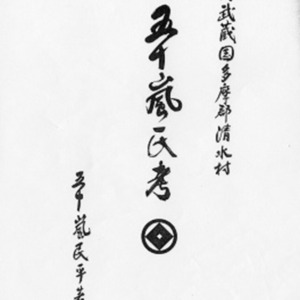 武蔵国多摩郡清水村
五十嵐氏考
五十嵐民平著